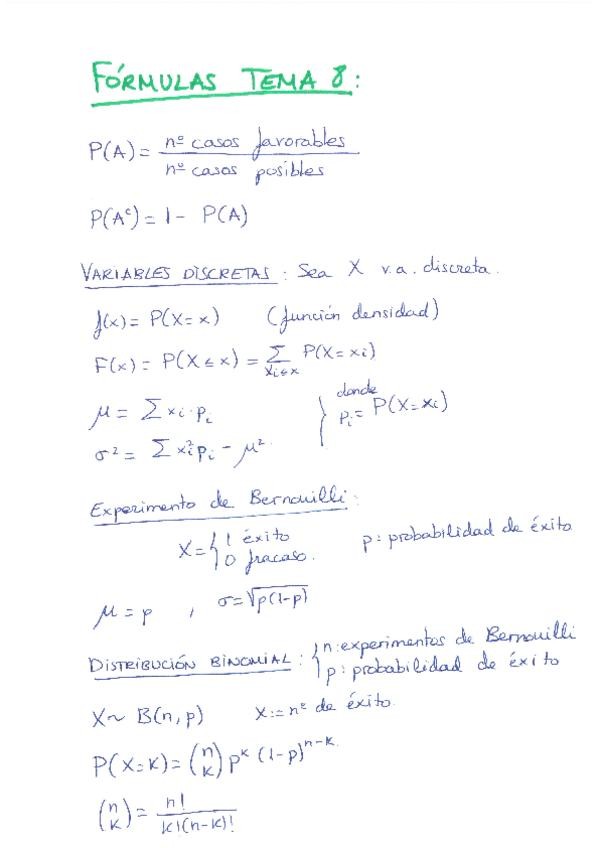 FÓRMULAS TEMA 8:
P(A) = nº casos favorables / nº casos posibles
P(Aᶜ) = 1 - P(A)
VARIABLES DISCRETAS: Sea X v.a. discreta.
f(x) = P(X=x) (función densidad)
F(x) = P(X≤x) = Σ_{xi≤x} P(X=xi)
μ = Σ xi·pi
σ² = Σ xi²pi - μ²
} donde pi = P(X=xi)
Experimento de Bernouilli:
X = { 1 éxito
0 fracaso.
p: probabilidad de éxito
μ = p , σ = √p(1-p)
DISTRIBUCIÓN BINOMIAL: { n: experimentos de Bernouilli
p: probabilidad de éxito
X ~ B(n,p) X:= nº de éxito.
P(X=k) = (n k) pᵏ (1-p)ⁿ⁻ᵏ.
(n k) = n! / k!(n-k)!